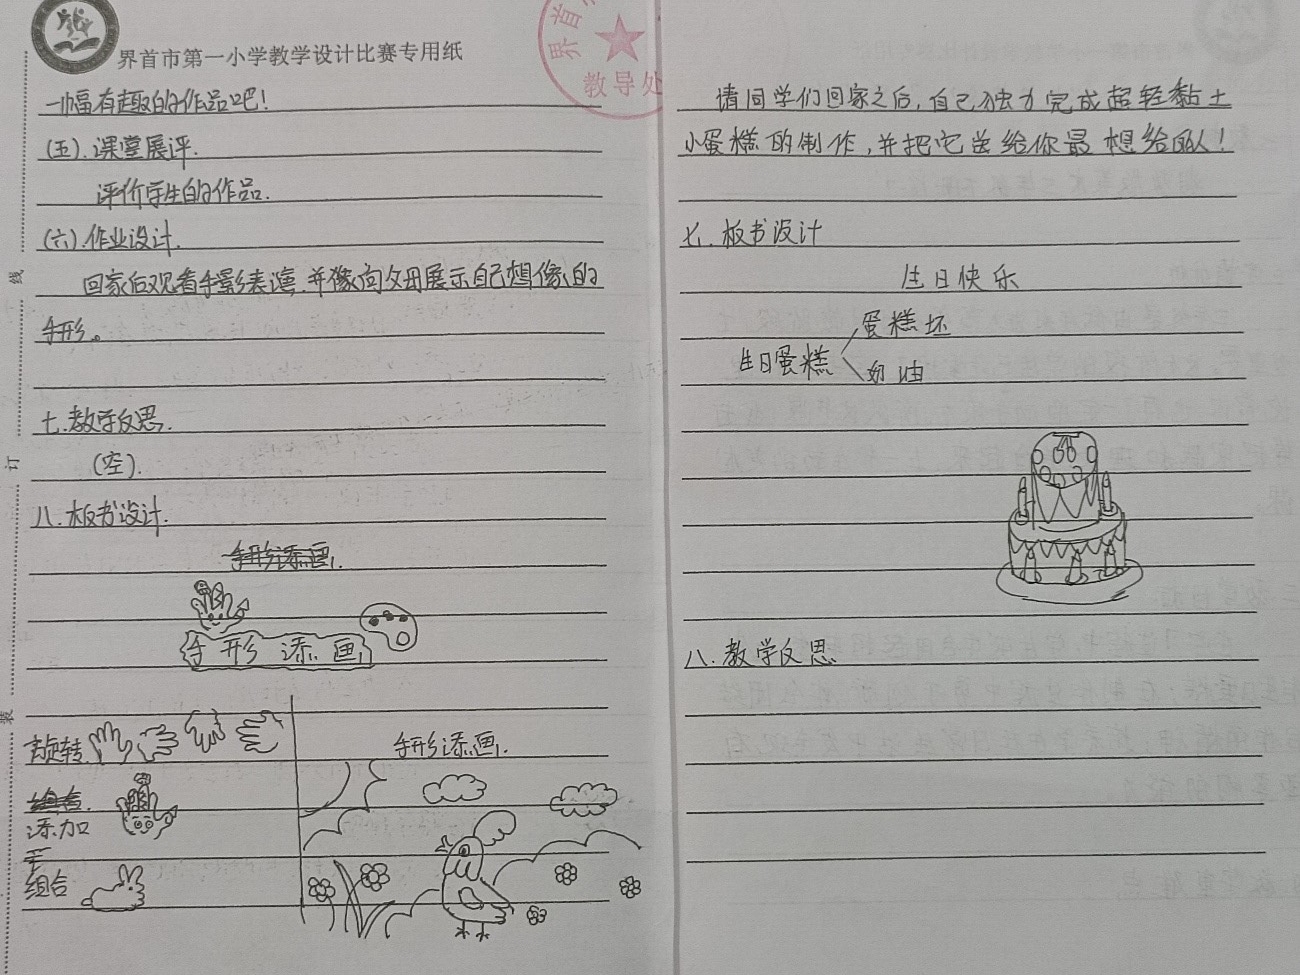 界首市第一小学教学设计比赛专用纸
一幅有趣的作品吧！
(五).课堂展评.
评价学生的作品.
(六).作业设计.
回家后观看手影表演,并像向父母展示自己想像的
手形。
七.教学反思.
(空).
八.板书设计.
手形添画.
手形添画
旋转
组合.
添加
组合
手形添画.
线
订
装
界首
教导处
请同学们回家之后,自己独力完成超轻黏土
小蛋糕的制作,并把它送给你最想给的人！
七.板书设计
生日快乐
生日蛋糕
蛋糕坯
奶油
八.教学反思